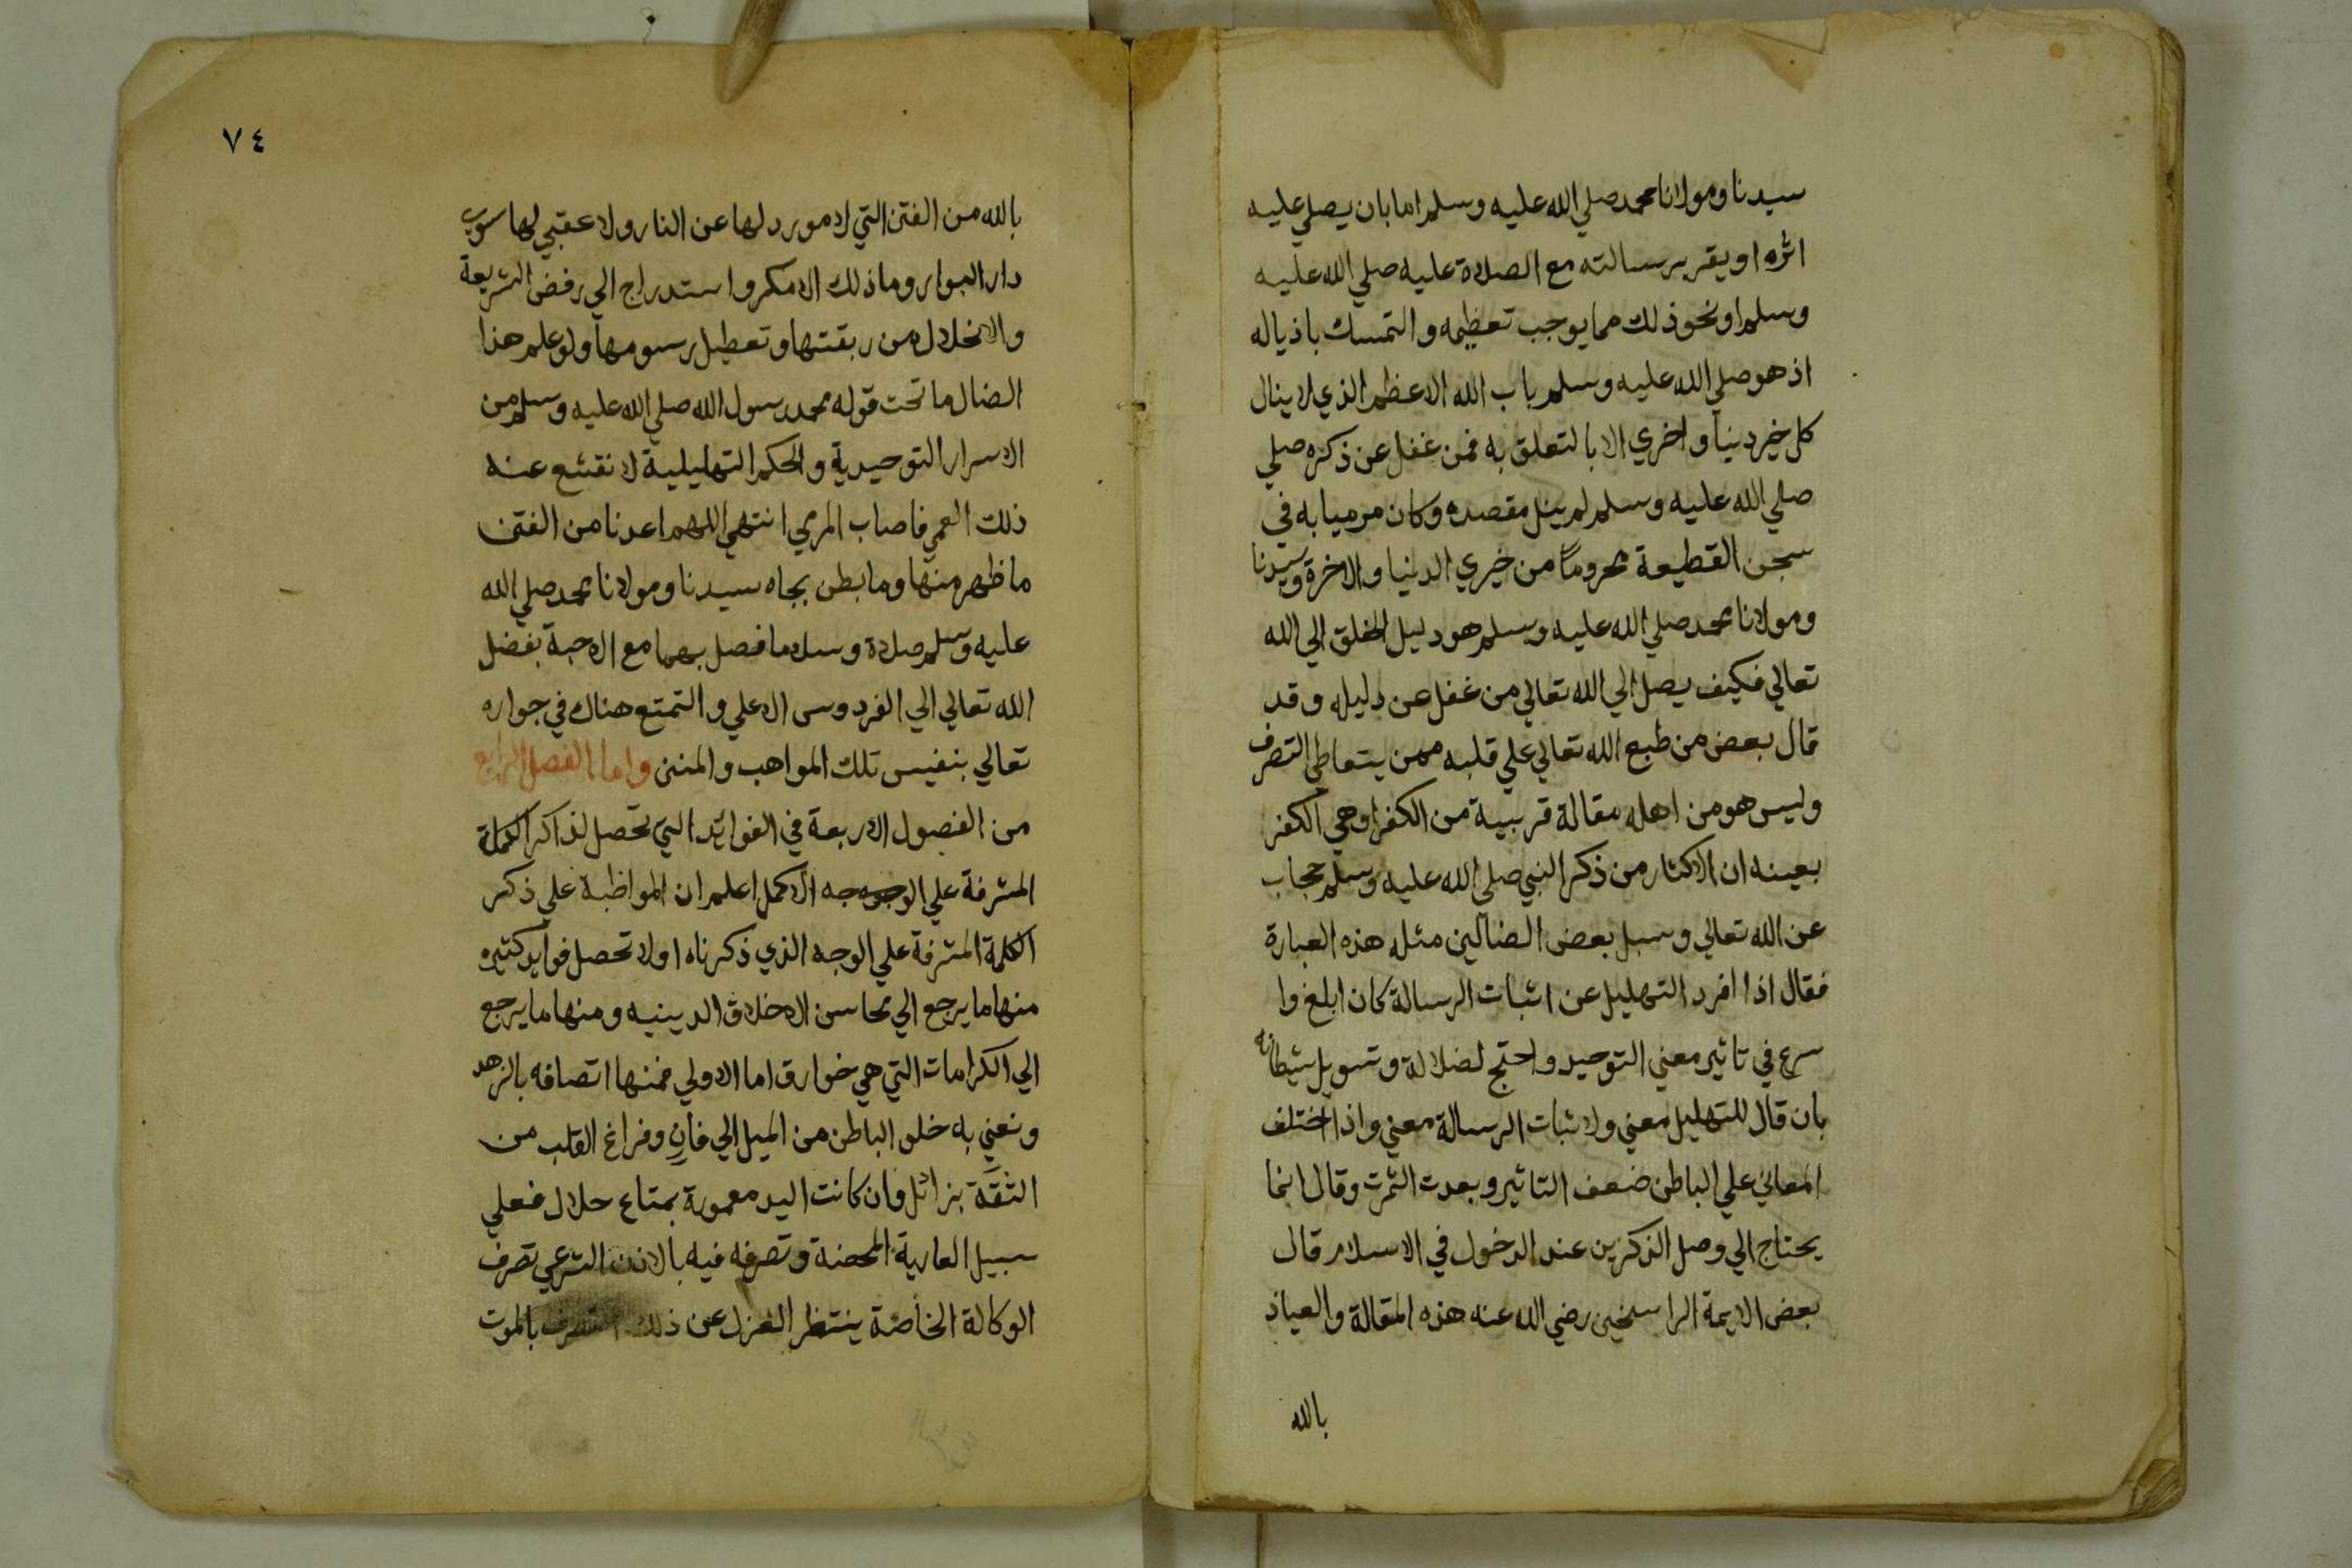 سيدنا ومولانا محمد صلي الله عليه وسلم اما بان يصلي عليه
اثره او يقر برسالته مع الصلاة عليه صلي الله عليه
وسلم او نحو ذلك مما يوجب تعظيمه والتمسك باذياله
اذ هو صلي الله عليه وسلم باب الله الاعظم الذي لا ينال
كل خير دنيا واخري الا بالتعلق به فمن غفل عن ذكره صلي
صلي الله عليه وسلم لم ينل مقصده وكان مرميا به في
سجن القطيعة محروما من خيري الدنيا والاخرة وسيدنا
ومولانا محمد صلي الله عليه وسلم هو دليل الخلق الي الله
تعالي فكيف يصل الي الله تعالي من غفل عن دليله وقد
قال بعض من طبع الله تعالي علي قلبه ممن يتعاطي التصرف
وليس هو من اهله مقالة قريبة من الكفر او هي الكفر
بعينه ان الاكثار من ذكر النبي صلي الله عليه وسلم حجاب
عن الله تعالي وسبل بعض الضالين مثله هذه العبارة
فقال اذا افرد التهليل عن اثبات الرسالة كان ابلغ وا
سرع في تاثير معني التوحيد واحتج لضلالة وتسويل شيطانه
بان قال للتهليل معني ولاثبات الرسالة معني واذا اختلف
المعاني علي الباطن ضعف التاثير وبعدت الثمرت وقال انما
يحتاج الي وصل الذكرين عند الدخول في الاسلام قال
بعض الايمة الراسخين رضي الله عنه هذه المقالة والعياذ
بالله
٧٤
بالله من الفتن التي لا مورد لها عن النار ولا عقبي لها سوي
دار البوار وما ذلك الا مكر واستدراج الي رفض الشريعة
والانحلال من ربقتها وتعطيل رسومها ولو علم هذا
الضال ما تحت قوله محمد رسول الله صلي الله عليه وسلم من
الاسرار التوحيدية والحكم التهليلية لانقشع عنه
ذلك العمي فاصاب المري انتهي اللهم اعدنا من الفتن
ما ظهر منها وما بطن بجاه سيدنا ومولانا محمد صلي الله
عليه وسلم صلاة وسلاما فصل بهما مع الاحبة بفضل
الله تعالي الي الفردوس الاعلي والتمتع هناك في جواره
تعالي بنفيس تلك المواهب والمنن واما الفصل الرابع
من الفصول الاربعة في الفوائد التي تحصل لذاكر الكلمة
المشرفة علي الوجه الاكمل اعلم ان المواظبة علي ذكر
الكلمة المشرفة علي الوجه الذي ذكرناه اولا تحصل فوايد كثيره
منها ما يرجع الي محاسن الاخلاق الدينيه ومنها ما يرجع
الي الكرامات التي هي خوارق اما الاولي فمنها اتصافه بالزهد
ونعني به خلو الباطن من الميل الي فانٍ وفراغ القلب من
الثقة بزائل وان كانت اليد معمورة بمتاع حلال فعلي
سبيل العارية المحضة وتصرفه فيه بالاذن الشرعي تصرف
الوكالة الخاصة ينتظر العزل عن ذلك التصرف بالموت